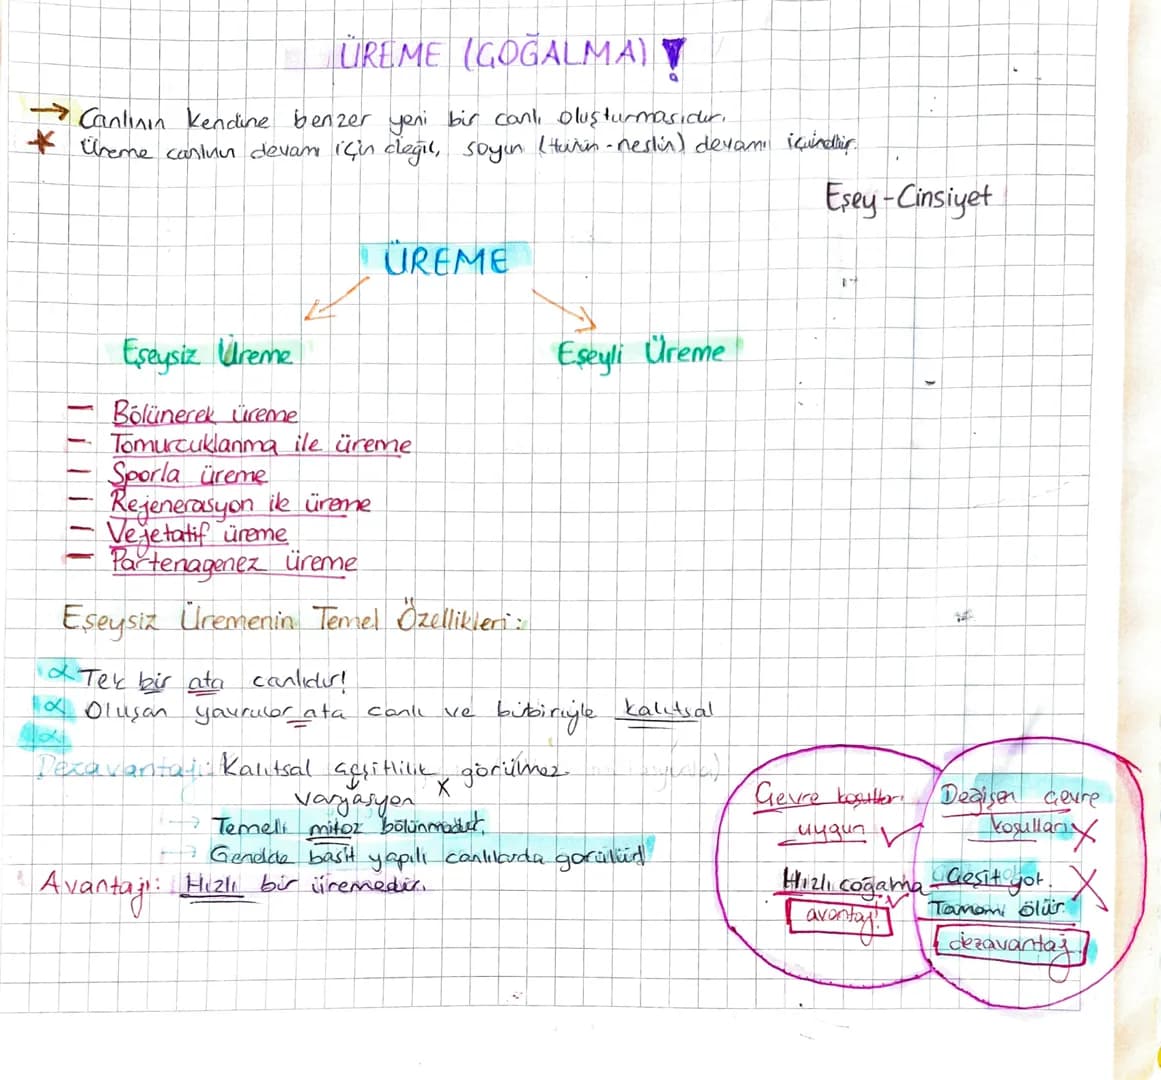 ÜREME (ÇOĞALMA)!
→ Canlının kendine benzer yeni bir canlı oluşturmasıdır.
* Üreme canlının devamı için değil, soyun (türün-neslin) devamı içindir.
Eşey-Cinsiyet
ÜREME
Eşeysiz Üreme
Eşeyli Üreme
- Bölünerek üreme
- Tomurcuklanma ile üreme
- Sporla üreme
- Rejenerasyon ile üreme
- Vejetatif üreme
- Partenagenez üreme
Eşeysiz Üremenin Temel Özellikleri:
α Tek bir ata canlıdır!
α Oluşan yavrular ata canlı ve birbiriyle kalıtsal
α
Dezavantajı: Kalıtsal çeşitlilik görülmez
varyasyon x
→ Temeli mitoz bölünmedir.
→ Genelde basit yapılı canlılarda görülür!
Avantajı: Hızlı bir üremedir.
Çevre koşulları
uygun ✓
Hızlı çoğalma ✓
avantaj!
Değişen çevre
koşulları X
Çeşit yok. X
Tamamı ölür.
dezavantaj!